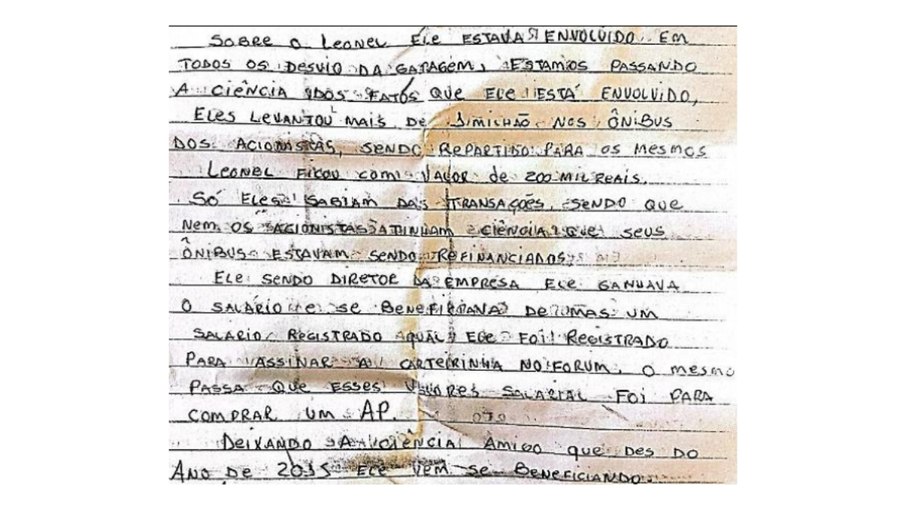 SOBRE O LEONEL ELE ESTAVA ENVOLVIDO EM
TODOS OS DESVIO DA GARAGEM, ESTAMOS PASSANDO
A CIÊNCIA DOS FATOS QUE ELE ESTÁ ENVOLVIDO,
ELES LEVANTOU MAIS DE 1 MILHÃO NOS ÔNIBUS
DOS ACIONISTAS, SENDO REPARTIDO PARA OS MESMOS
LEONEL FICOU COM VALOR DE 200 MIL REAIS.
SÓ ELES SABIAM DAS TRANSAÇÕES, SENDO QUE
NEM OS ACIONISTAS TINHAM CIÊNCIA QUE SEUS
ÔNIBUS ESTAVAM SENDO REFINANCIADOS
ELE SENDO DIRETOR DA EMPRESA ELE GANHAVA
O SALÁRIO E SE BENEFICIAVA DE MAS UM
SALÁRIO REGISTRADO AQUAL ELE FOI REGISTRADO
PARA ASSINAR A CARTEIRINHA NO FORUM, O MESMO
PASSA QUE ESSES VALORES SALARIAL FOI PARA
COMPRAR UM AP.
DEIXANDO A CIÊNCIA AMIGO QUE DES DO
ANO DE 2015 ELE VEM SE BENEFICIANDO.